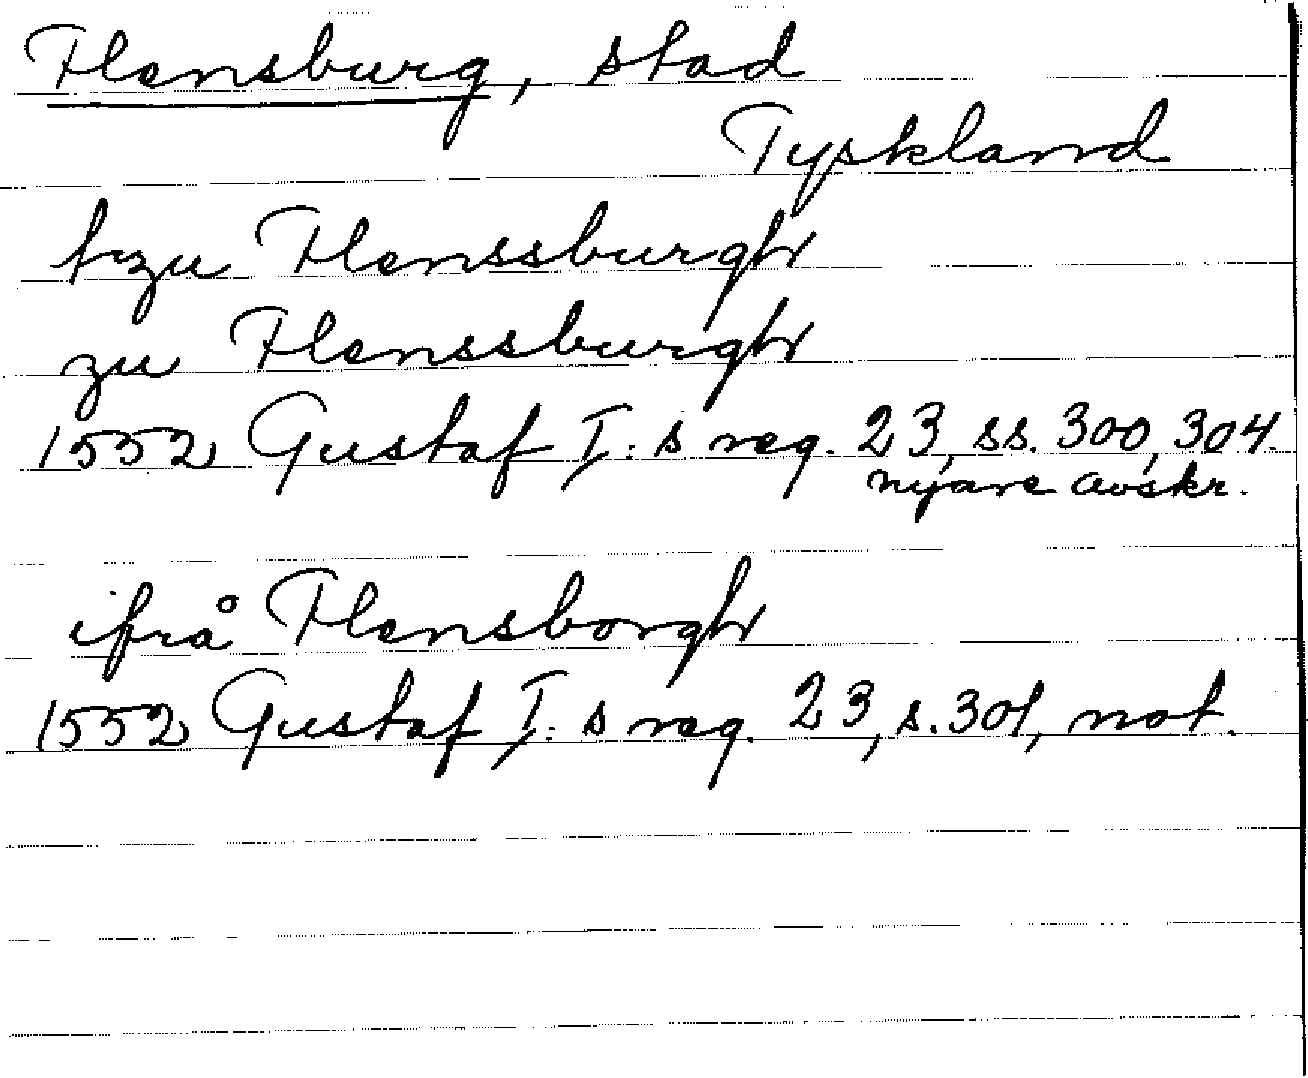 Flensburg, stad
Tyskland
tzu Flenssburgh
zu Flenssburgh
1552 Gustaf I:s reg. 23, ss. 300, 304.
nyare avskr.
ifrå Flensborgh
1552 Gustaf I:s reg. 23, s. 301, not.